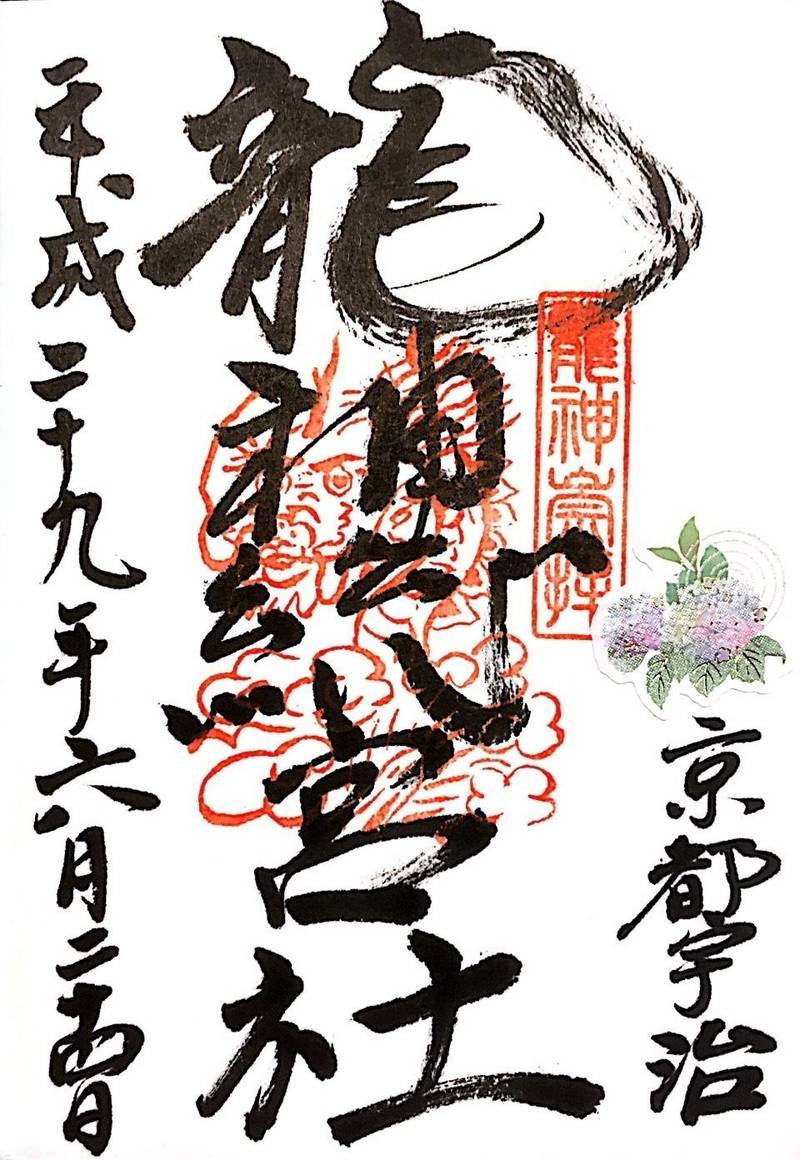 京都宇治
龍神崇拝
龍神総宮社
平成二十九年六月二十四日